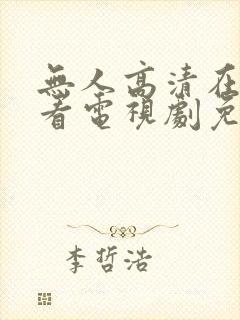 無人高清在
看電視劇免
李哲浩